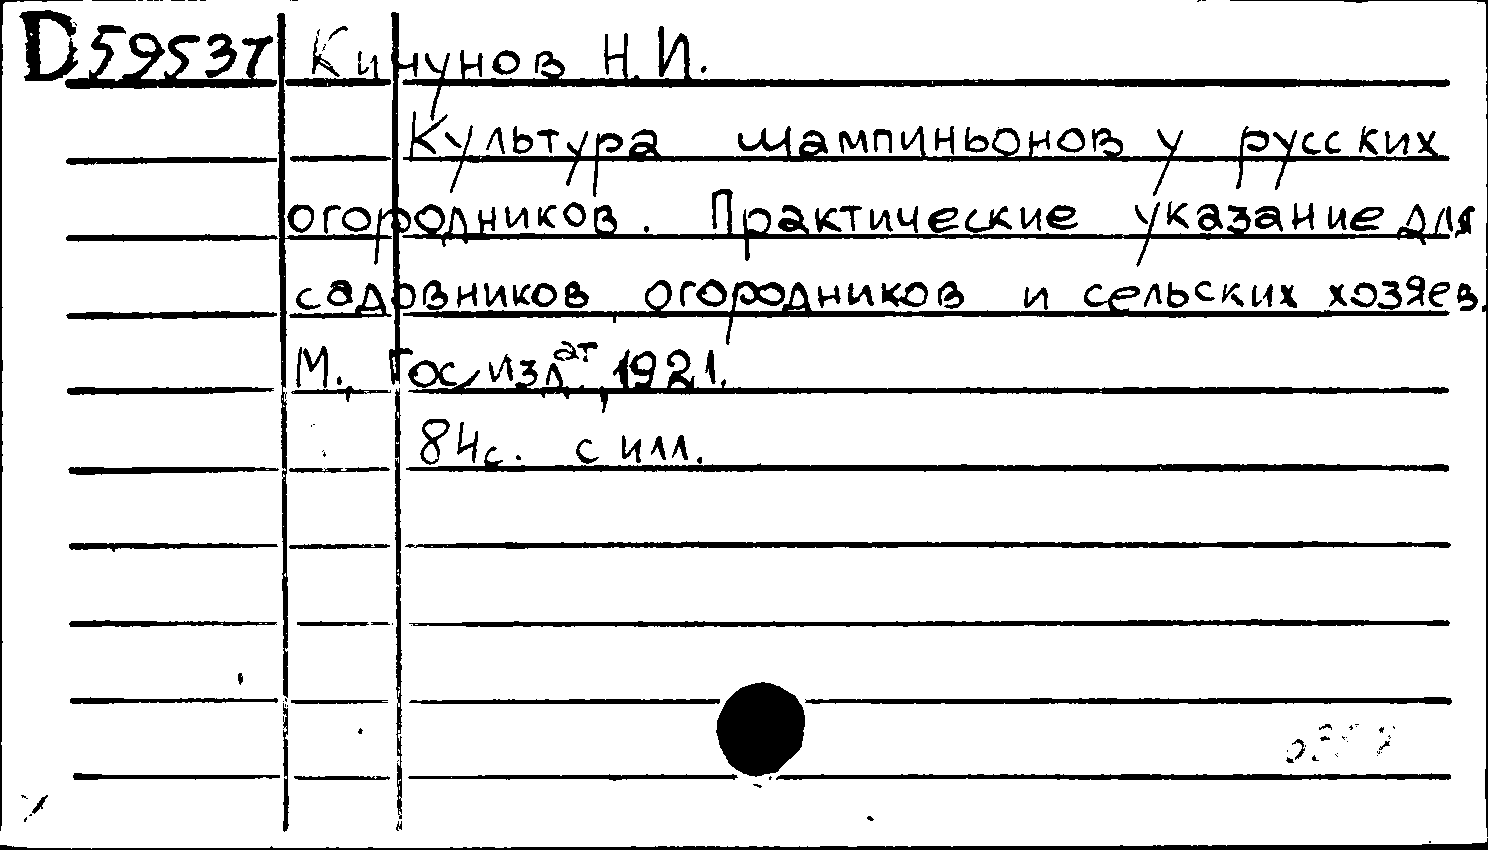 D59537 Кичунов Н.И.
Культура шампиньонов у русских
огородников. Практические указание для
садовников огородников и сельских хозяев.
М., Госиздат, 1921.
84с. с илл.